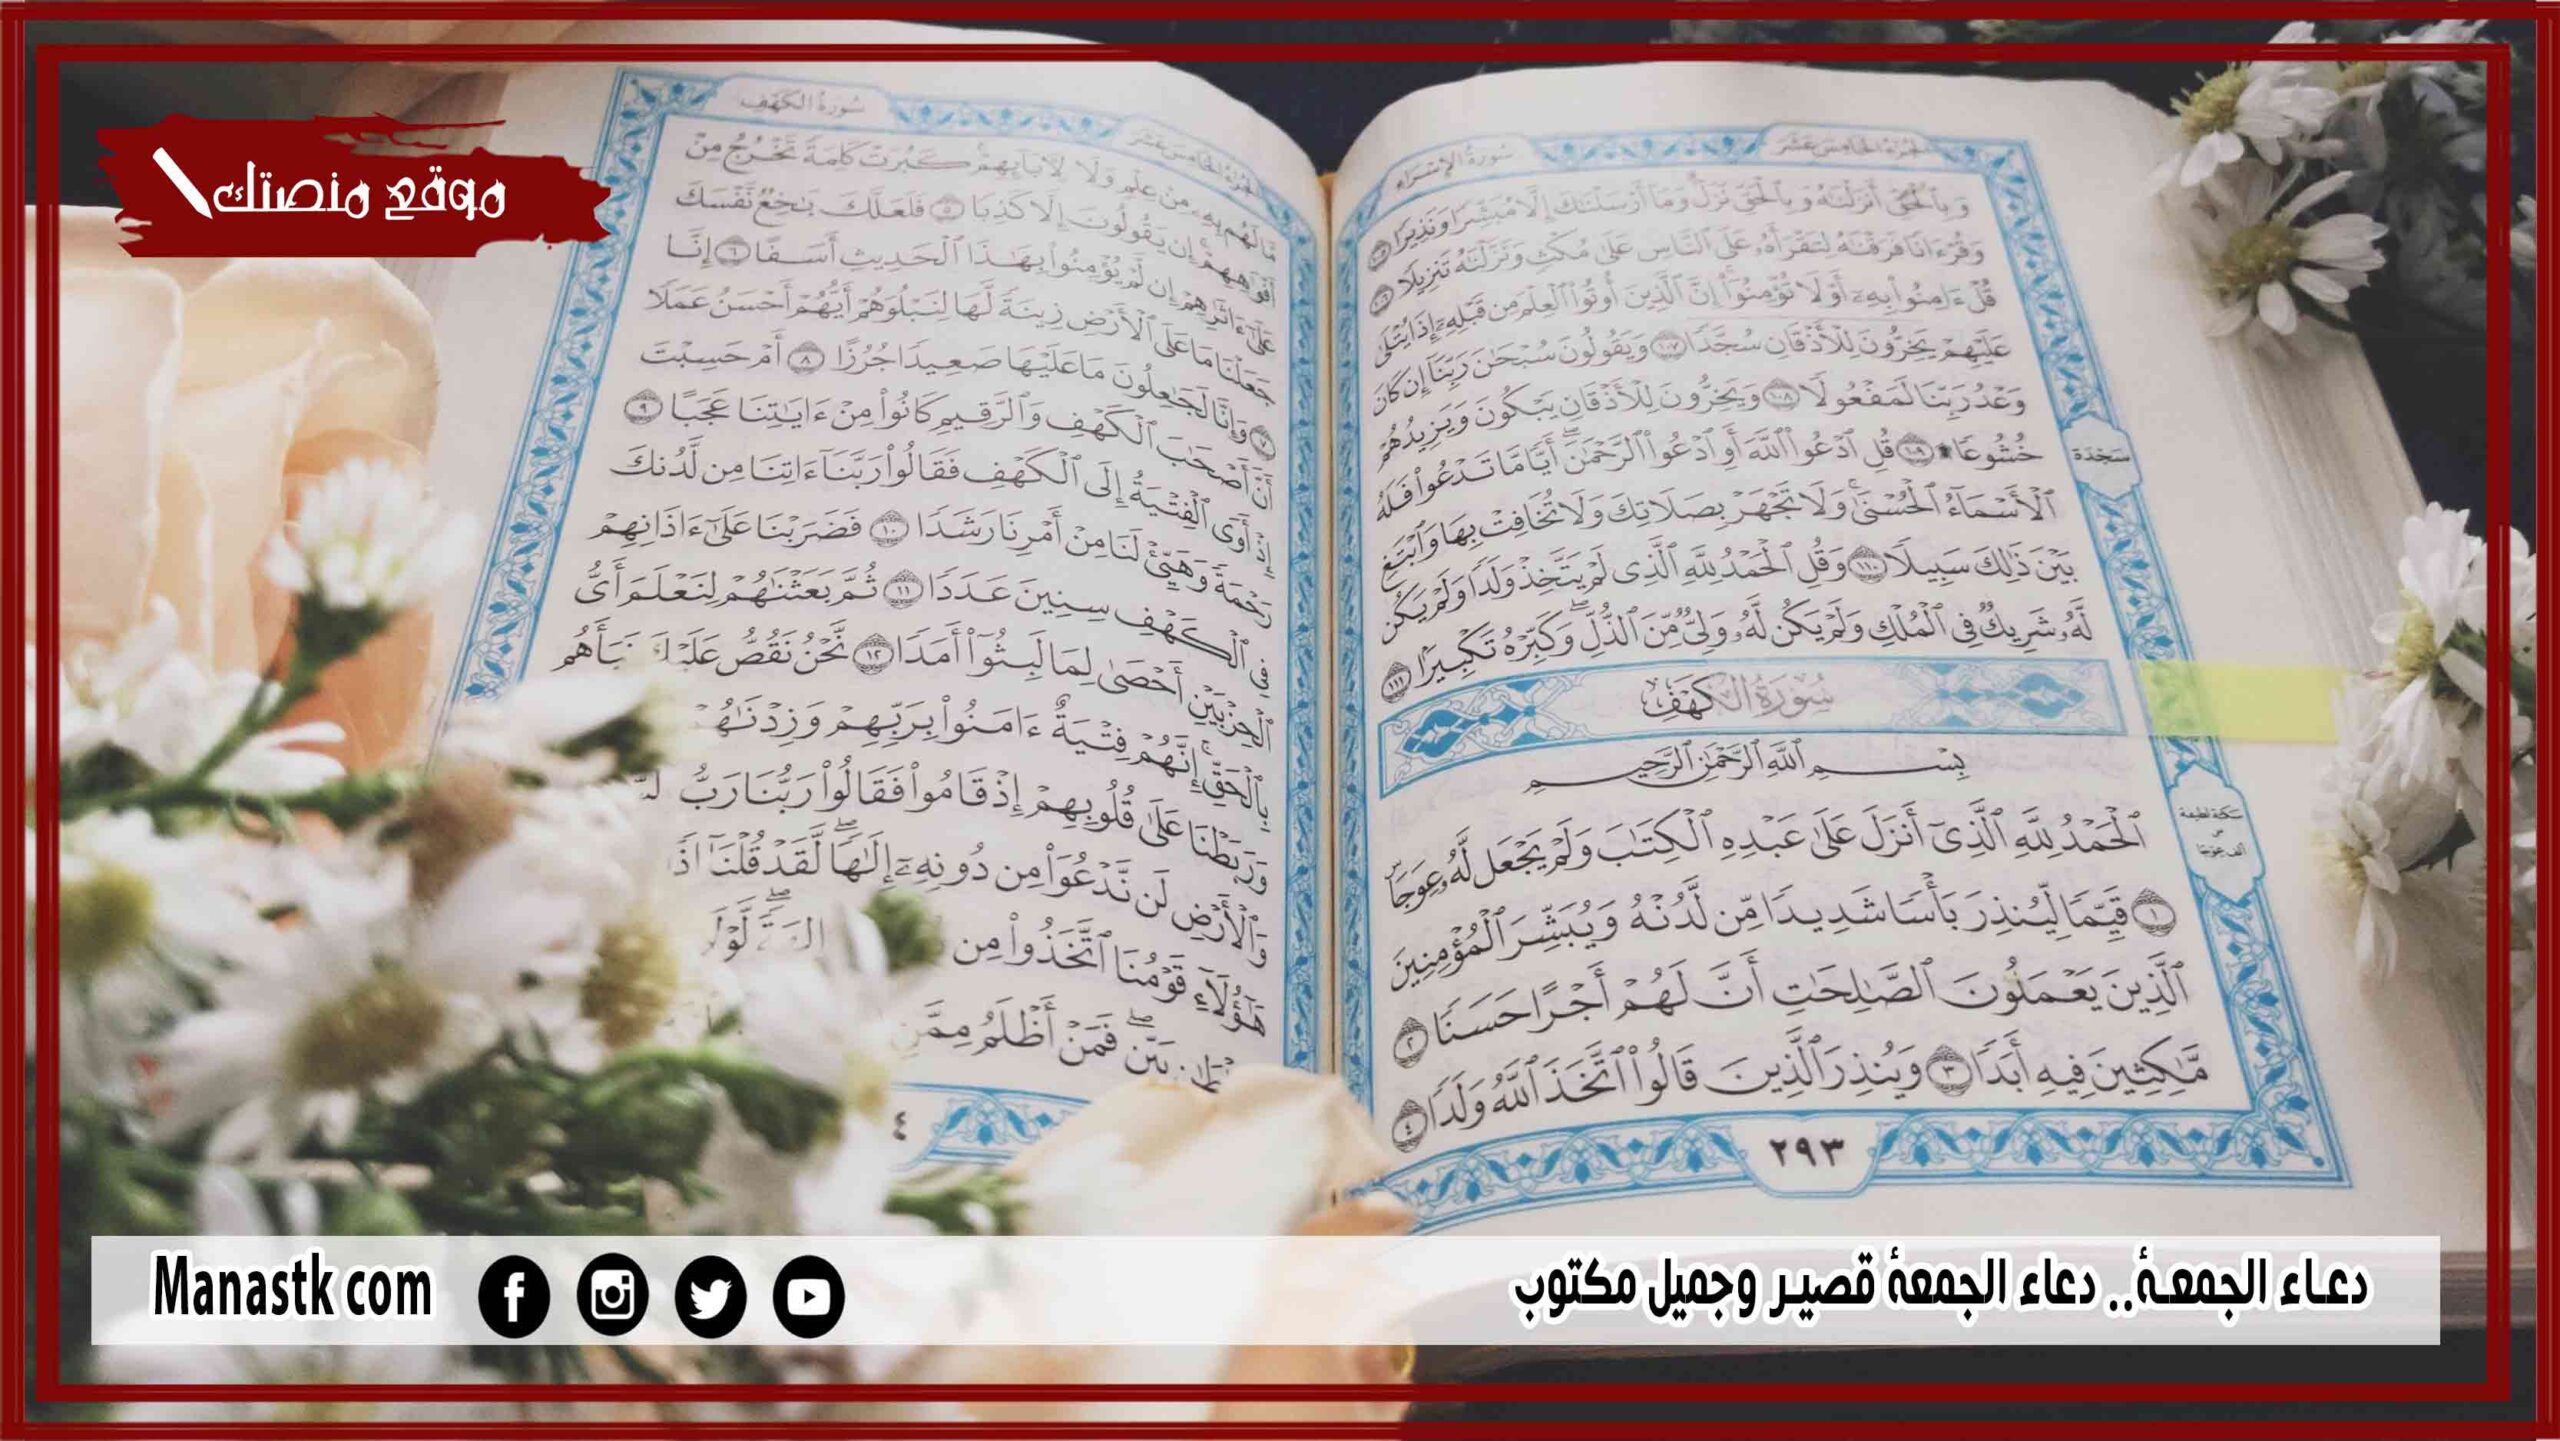 موقع منصتك
سُورَةُ الإِسْرَاءِ
الجُزْءُ الخَامِسَ عَشَرَ
وَبِٱلْحَقِّ أَنزَلْنَٰهُ وَبِٱلْحَقِّ نَزَلَ وَمَآ أَرْسَلْنَٰكَ إِلَّا مُبَشِّرًا وَنَذِيرًا ١٠٥
وَقُرْءَانًا فَرَقْنَٰهُ لِتَقْرَأَهُۥ عَلَى ٱلنَّاسِ عَلَىٰ مُكْثٍ وَنَزَّلْنَٰهُ تَنزِيلًا ١٠٦
قُلْ ءَامِنُوا۟ بِهِۦٓ أَوْ لَا تُؤْمِنُوٓا۟ إِنَّ ٱلَّذِينَ أُوتُوا۟ ٱلْعِلْمَ مِن قَبْلِهِۦٓ إِذَا يُتْلَىٰ
عَلَيْهِمْ يَخِرُّونَ لِلْأَذْقَانِ سُجَّدًا ١٠٧ وَيَقُولُونَ سُبْحَٰنَ رَبِّنَآ إِن كَانَ
وَعْدُ رَبِّنَا لَمَفْعُولًا ١٠٨ وَيَخِرُّونَ لِلْأَذْقَانِ يَبْكُونَ وَيَزِيدُهُمْ
خُشُوعًا ۩ ١٠٩ قُلِ ٱدْعُوا۟ ٱللَّهَ أَوِ ٱدْعُوا۟ ٱلرَّحْمَٰنَ أَيًّا مَّا تَدْعُوا۟ فَلَهُ
سَجْدَة
ٱلْأَسْمَآءُ ٱلْحُسْنَىٰ وَلَا تَجْهَرْ بِصَلَاتِكَ وَلَا تُخَافِتْ بِهَا وَٱبْتَغِ
بَيْنَ ذَٰلِكَ سَبِيلًا ١١٠ وَقُلِ ٱلْحَمْدُ لِلَّهِ ٱلَّذِى لَمْ يَتَّخِذْ وَلَدًا وَلَمْ يَكُن
لَّهُۥ شَرِيكٌ فِى ٱلْمُلْكِ وَلَمْ يَكُن لَّهُۥ وَلِىٌّ مِّنَ ٱلذُّلِّ وَكَبِّرْهُ تَكْبِيرًۢا ١١١
سُورَةُ الكَهْفِ
بِسْمِ ٱللَّهِ ٱلرَّحْمَٰنِ ٱلرَّحِيمِ
ٱلْحَمْدُ لِلَّهِ ٱلَّذِىٓ أَنزَلَ عَلَىٰ عَبْدِهِ ٱلْكِتَٰبَ وَلَمْ يَجْعَل لَّهُۥ عِوَجَاۜ
١ قَيِّمًا لِّيُنذِرَ بَأْسًا شَدِيدًا مِّن لَّدُنْهُ وَيُبَشِّرَ ٱلْمُؤْمِنِينَ
ٱلَّذِينَ يَعْمَلُونَ ٱلصَّٰلِحَٰتِ أَنَّ لَهُمْ أَجْرًا حَسَنًا ٢
مَّٰكِثِينَ فِيهِ أَبَدًا ٣ وَيُنذِرَ ٱلَّذِينَ قَالُوا۟ ٱتَّخَذَ ٱللَّهُ وَلَدًا ٤
٢٩٣
سكتة لطيفة
على
ألف عوجا
الجُزْءُ الخَامِسَ عَشَرَ
سُورَةُ الكَهْفِ
مَّا لَهُم بِهِۦ مِنْ عِلْمٍ وَلَا لِءَابَآئِهِمْ كَبُرَتْ كَلِمَةً تَخْرُجُ مِنْ
أَفْوَٰهِهِمْ إِن يَقُولُونَ إِلَّا كَذِبًا ٥ فَلَعَلَّكَ بَٰخِعٌ نَّفْسَكَ
عَلَىٰٓ ءَاثَٰرِهِمْ إِن لَّمْ يُؤْمِنُوا۟ بِهَٰذَا ٱلْحَدِيثِ أَسَفًا ٦ إِنَّا
جَعَلْنَا مَا عَلَى ٱلْأَرْضِ زِينَةً لَّهَا لِنَبْلُوَهُمْ أَيُّهُمْ أَحْسَنُ عَمَلًا
٧ وَإِنَّا لَجَٰعِلُونَ مَا عَلَيْهَا صَعِيدًا جُرُزًا ٨ أَمْ حَسِبْتَ
أَنَّ أَصْحَٰبَ ٱلْكَهْفِ وَٱلرَّقِيمِ كَانُوا۟ مِنْ ءَايَٰتِنَا عَجَبًا ٩
إِذْ أَوَى ٱلْفِتْيَةُ إِلَى ٱلْكَهْفِ فَقَالُوا۟ رَبَّنَآ ءَاتِنَا مِن لَّدُنكَ
رَحْمَةً وَهَيِّئْ لَنَا مِنْ أَمْرِنَا رَشَدًا ١٠ فَضَرَبْنَا عَلَىٰٓ ءَاذَانِهِمْ
فِى ٱلْكَهْفِ سِنِينَ عَدَدًا ١١ ثُمَّ بَعَثْنَٰهُمْ لِنَعْلَمَ أَىُّ
ٱلْحِزْبَيْنِ أَحْصَىٰ لِمَا لَبِثُوٓا۟ أَمَدًا ١٢ نَّحْنُ نَقُصُّ عَلَيْكَ نَبَأَهُم
بِٱلْحَقِّ إِنَّهُمْ فِتْيَةٌ ءَامَنُوا۟ بِرَبِّهِمْ وَزِدْنَٰهُمْ
وَرَبَطْنَا عَلَىٰ قُلُوبِهِمْ إِذْ قَامُوا۟ فَقَالُوا۟ رَبُّنَا رَبُّ
وَٱلْأَرْضِ لَن نَّدْعُوَا۟ مِن دُونِهِۦٓ إِلَٰهًا لَّقَدْ قُلْنَآ
هَٰٓؤُلَآءِ قَوْمُنَا ٱتَّخَذُوا۟ مِن ءَالِهَةً لَّوْلَا
بَيِّنٍ فَمَنْ أَظْلَمُ مِمَّنِ
Manastk com
دعـاء الجمعـة.. دعاء الجمعة قصيـر وجميل مكتوب